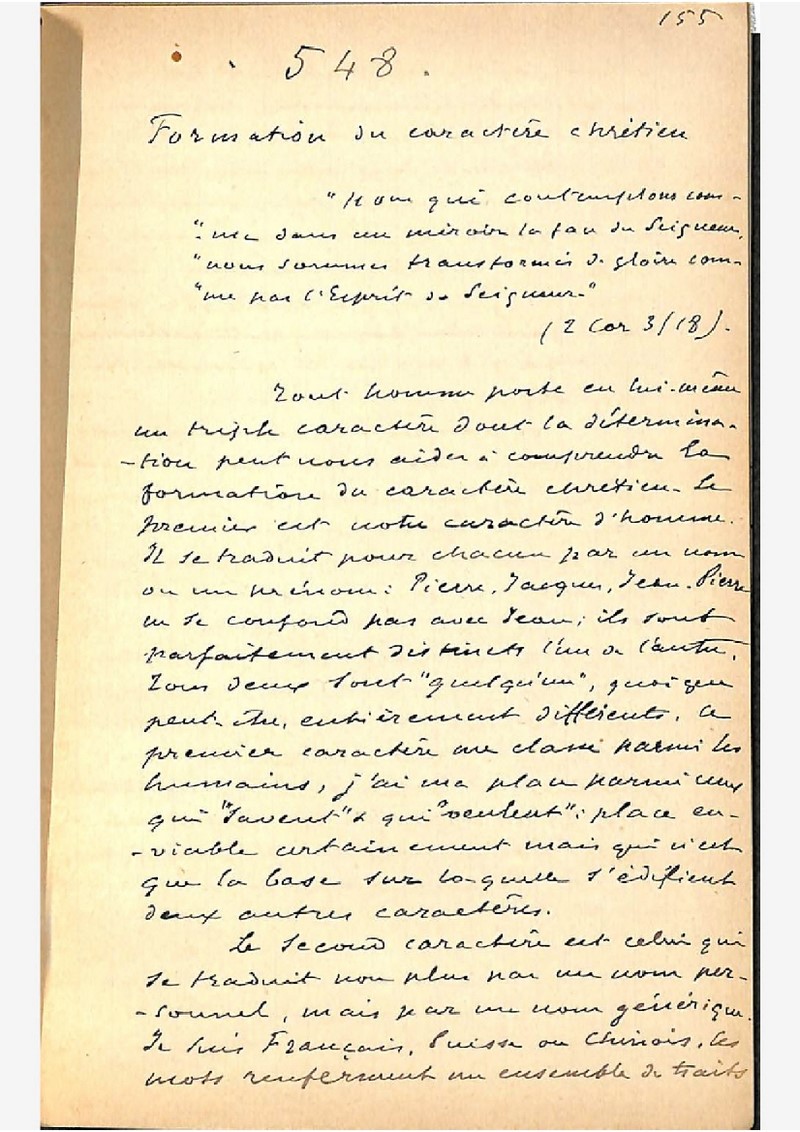 155
548.
Formation du caractère chrétien
"Nous qui contemplons com-
"me dans un miroir la face du Seigneur,
"nous sommes transformés de gloire com-
"me par l'Esprit du Seigneur."
(2 Cor 3/18).
Tout homme porte en lui-même
un triple caractère dont la détermina-
-tion peut nous aider à comprendre la
formation du caractère chrétien. Le
premier est notre caractère d'homme.
Il se traduit pour chacun par un nom
ou un prénom: Pierre, Jacques, Jean. Pierre
ne se confond pas avec Jean; ils sont
parfaitement distincts l'un de l'autre.
Tous deux sont "quelqu'un", quoique
peut-être, entièrement différents. Ce
premier caractère me classe parmi les
humains, j'ai ma place parmi ceux
qui "savent" & qui "veulent": place en-
-viable certainement mais qui n'est
que la base sur laquelle s'édifient
deux autres caractères.
Le second caractère est celui qui
se traduit non plus par un nom per-
-sonnel, mais par un nom générique.
Je suis Français, Suisse ou Chinois, les
mots renferment un ensemble de traits